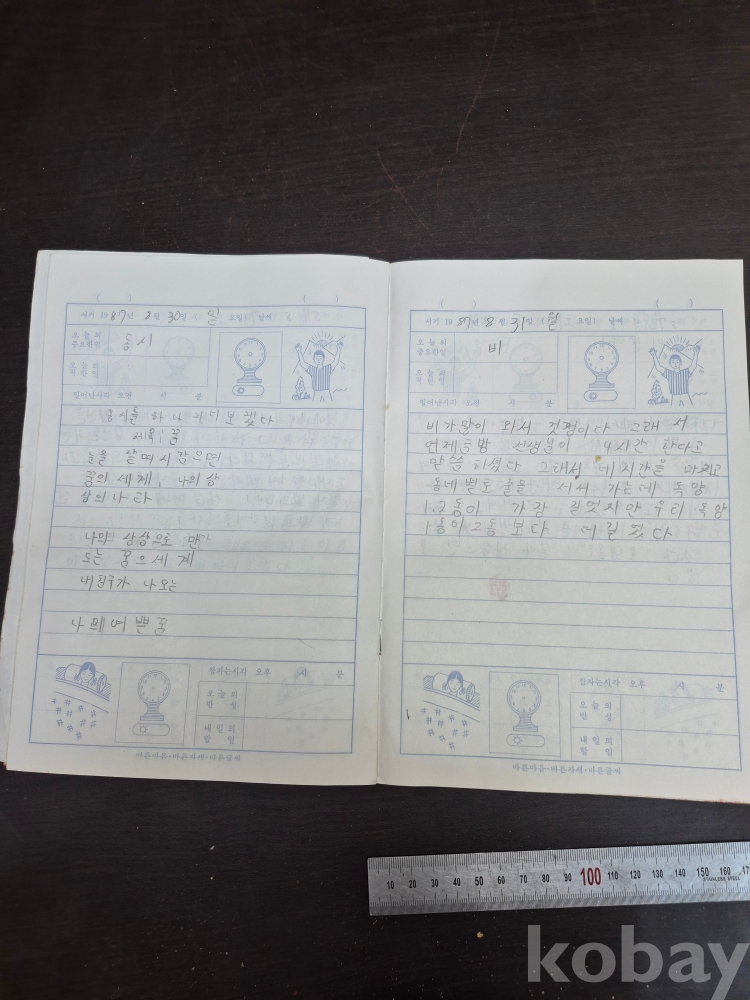 서기 1987년 8월 30일 (일 요일) 날씨
오늘의
중요한일
동시
오늘의
착한일
일어난시각 오전 시 분
동시를 하나 지어보겠다
제목; 꿈
눈을 살며시 감으면
꿈의 세계, 나의 상
상의 나라
나의 상상으로 만
드는 꿈으 세계
내 친구가 나오는
나의 예쁜꿈
잠자는시각 오후 시 분
오늘의
반성
내일의
할일
바른마음·바른자세·바른글씨
서기 1987년 8월 31일 (월 요일) 날씨
오늘의
중요한일
비
오늘의
착한일
일어난시각 오전 시 분
비가많이 와서 걱정이다 그래서
선생님이 4시간 한다고
말씀 하셨다 그래서 네시간을 마치고
동네별로 줄을 서서 가는데 목양
1.2동이 가장 길었지만 우리 목양
1동이 2동 보다 더길었다
잠자는시각 오후 시 분
오늘의
반성
내일의
할일
바른마음·바른자세·바른글씨
10 20 30 40 50 60 70 80 90 100 110 120 130 140 150 160 17
STAINLESS STEEL
kobay